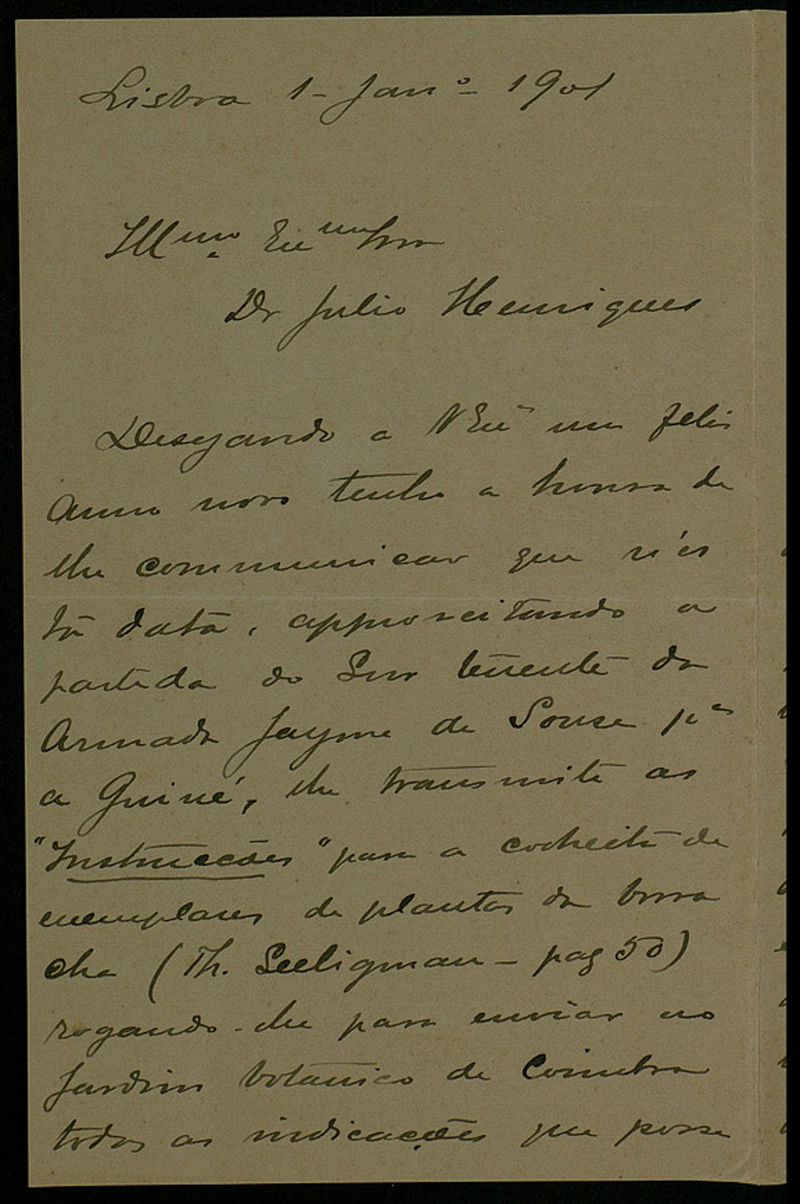 Lisboa 1 - Janº - 1901
Illmo Exmo Snr
Dr Julio Henriques
Desejando a V Exª um feliz
anno novo tenho a honra de
lhe communicar que n'es
ta data, approveitando a
partida do Snr tenente da
Armada Jayme de Sousa pª
a Guiné, lhe transmitti as
"Instrucções" para a colheita de
exemplares de plantas da borra
cha (Th. Seeligman - pag 50)
rogando-lhe para enviar ao
Jardim botanico de Coimbra
todas as indicações que possa